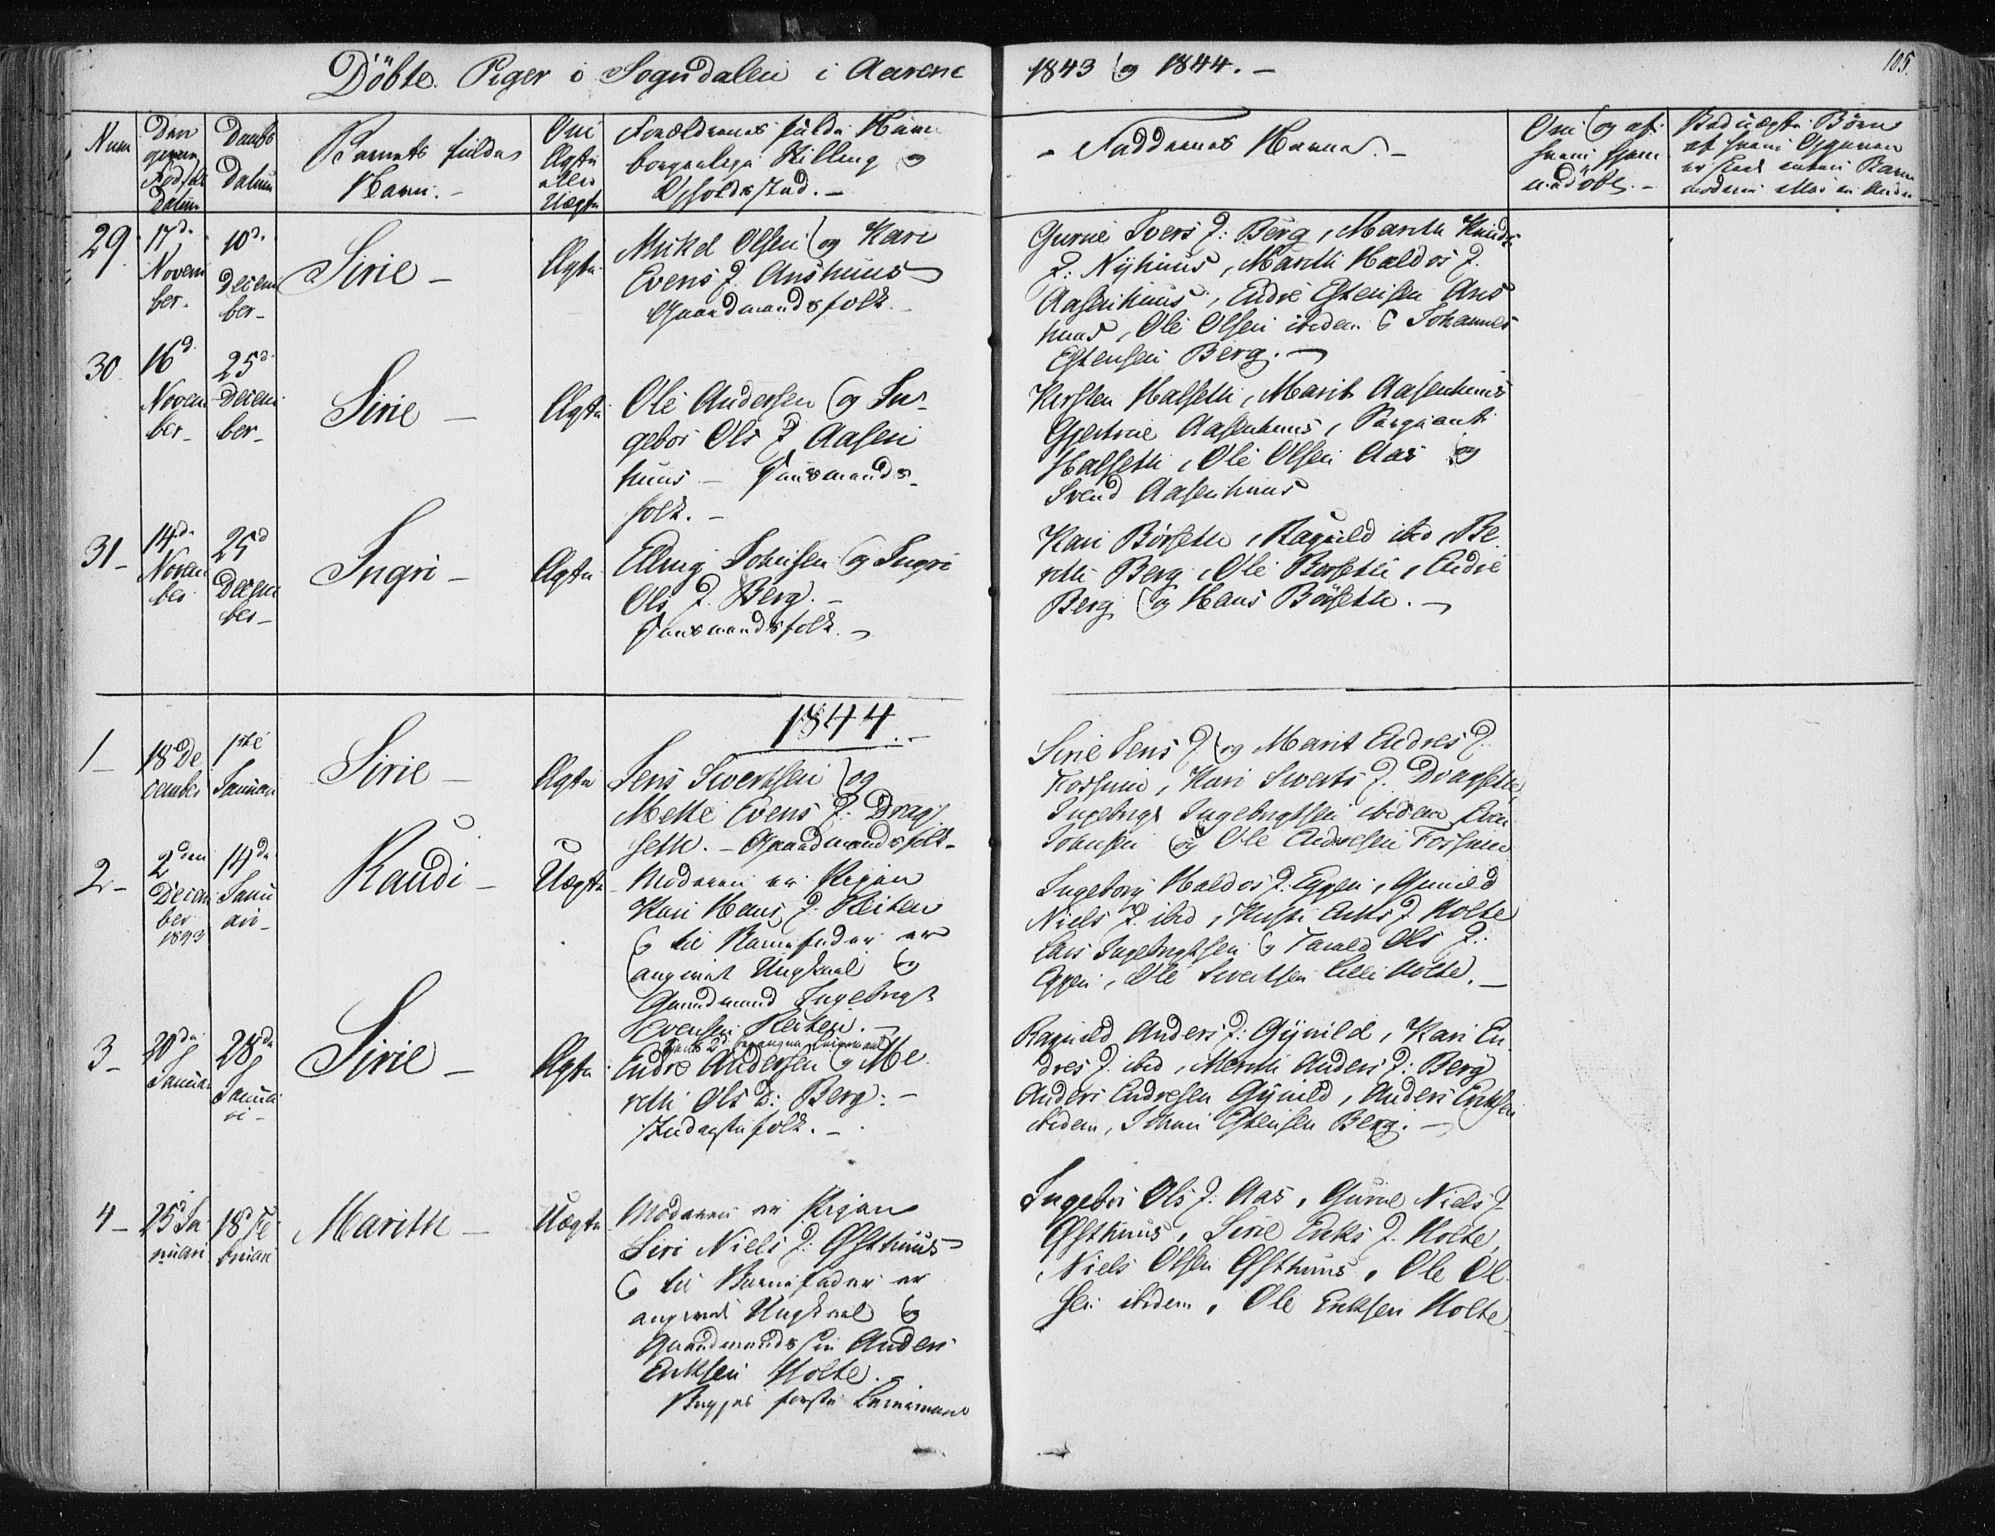 Döbte Piger i Sogndalen i Aarene 1843 og 1844. –
105.
Num
Den
Föds
Datum
Daabs
Datum
Barnets fulde
Navn. –
Om
Ægte
eller
Uægte
Forældrenes fulde Navn
borgerlige Stilling og
Opholdssted. –
– Faddernes Navne. –
Om og af
hvem hjem
medöbt. –
Ved uægte Börn
af hvem Opgaven
er skeet enten Barne
moderen eller en Anden
29.
17d.
Novem
ber.
10d.
Decem
ber –
Sirie –
Ægte
Mikel Olsen og Kari
Evens D. Anshuus
Gaardmandsfolk. –
Gurue Ivers D: Berg, Marith Knuds
D: Nyhuus, Marith Haldos D.
Aasenhuus, Endre Estensen Ans
huus, Ole Olsen ibidem & Johannes
Estensen Berg. –
30.
16d.
Novem
ber –
25d.
Decem
ber –
Sirie –
Ægte
Ole Andersen og In-
gebor Ols D. Aasen
huus – Huusmands-
folk. –
Kirsten Halseth, Marit Aasenhuus
Gjertrue Aasenhuus, Sergiant
Halseth, Ole Olsen Aas og
Svend Aasenhuus
31 –
14d.
Novem
ber
25d
Decem
ber –
Ingri –
Ægte
Elling Johnsen og Ingri
Ols D. Berg. –
Huusmandsfolk. –
Kari Börseth, Ragnild ibid, Be-
reth Berg, Ole Borseth, Endre
Berg og Hans Börseth. –
1844. –
1 –
18 De
cember
1ste
Januar
Sirie –
Ægte
Jens Sivertsen og
Mette Evens D: Drag-
seth. – Gaardmandsfolk –
Sirie Jens D og Marit Endres D.
Fossum, Kari Siverts D. Dragseth,
Ingebrigt Ingebrigtsen ibidem, Even
Johnsen og Ole Endresen Fossum
2 –
2den
Decem
ber
1843
14de
Janu
ari –
Randi –
Uægte
Moderen er Pigen
Kari Hans D. Reiten
& til Barnefader er
angivet Ungkarl og
Gaardmand Ingebrigt
Evensen Reiten. –
Ingeborg Haldos D. Eggen, Gunild
Niels D. ibid, Kirsti Eriks D. Holte
Lars Ingebrigtsen & Ols D:
Eggen, Ole Sivertsen Lille Holte. –
3 –
20de
Januar
28de
Janua
ri –
Sirie –
Ægte
Endre Andersen og Me
reth Ols D: Berg. –
Inderstfolk. –
Ragnild Anders D: Gynild, Kari En-
dres D. ibid, Mereth Anders D: Berg
Anders Endresen Gynild, Anders Eriksen
ibidem, Johan Estensen Berg. –
4 –
25d Ja
nuari
18d Fe
bruari
Marith –
Uægte
Moderen er Pigen
Siri Niels D: Osthuus
& til Barnefader er
angivet Ungkarl og
Gaardmandssön Anders
Eriksen Holte. –
Begges förste Leiermaal
Ingebor Ols D: Aas, Gurue Niels D
Osthuus, Sirie Eriks D. Holte,
Niels Olsen Osthuus, Ole Ol
sen ibidem, Ole Eriksen Holte